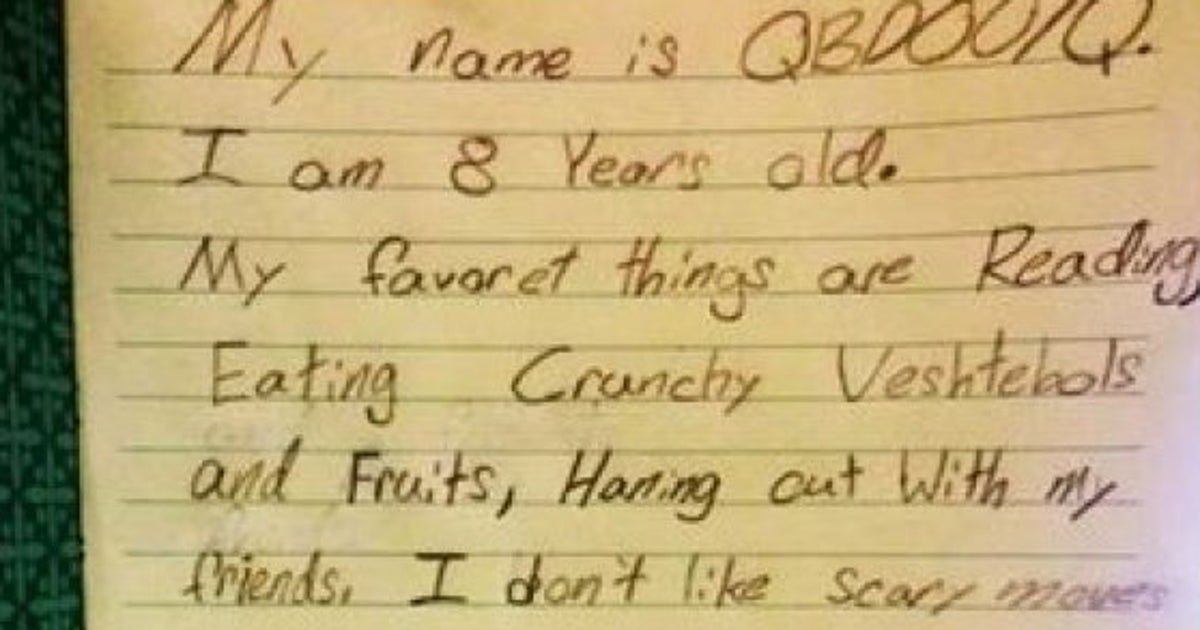 My name is
I am 8 Years old.
My favoret things are Reading,
Eating Crunchy Veshtebols
and Fruits, Haning out With my
friends, I don't like scary moves